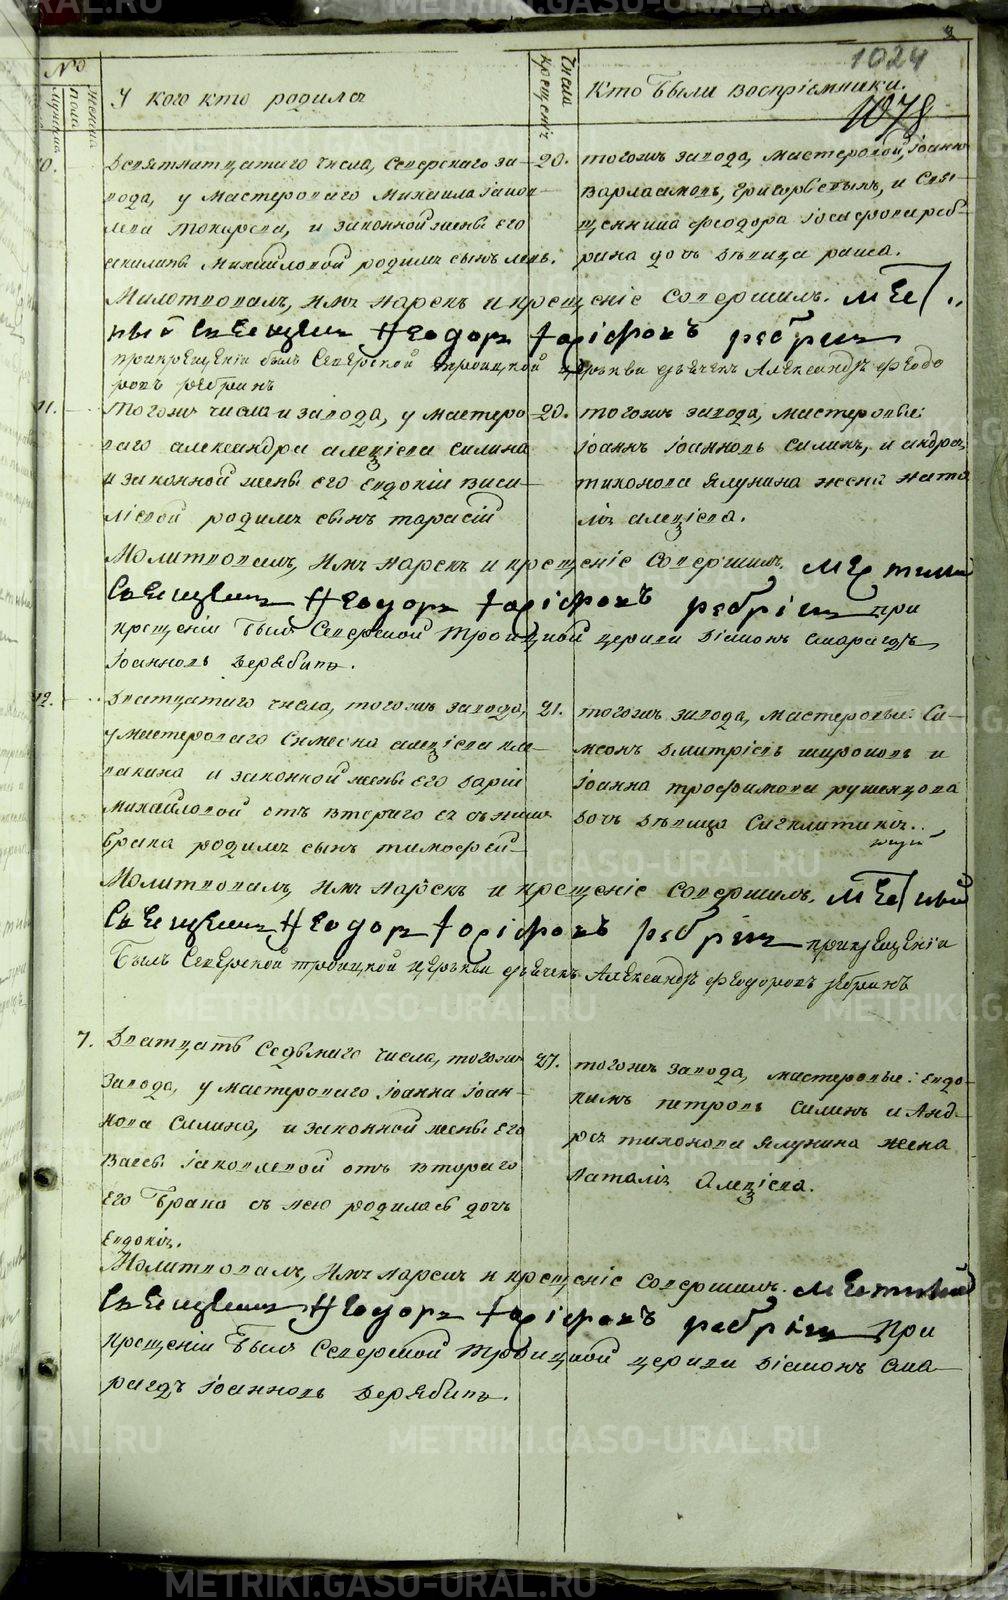 METRIKI.GASO-URAL.RU
1024
1078
№
мужеска
пола
женска
У кого кто родился
Числа крещенія
Кто были Воспріемники.
10.
Девятнатцатаго числа, Северскаго за-
вода, у Мастероваго Михаила Iаков-
лева Токарева, и законной жены его
акилины Михайловой родился сынъ левъ.
20.
тогожъ завода, Мастеровой, Iоаннъ
Варлаамовъ, и Свя-
щенника феодора Iосифова реб-
рина дочь девица раиса.
Молитвовалъ, имя нарекъ и крещеніе Совершилъ. Мест-
ный Священникъ Феодоръ Iосифовъ ребринъ
при крещеніи былъ Северской троицкой церькви дьячекъ Александръ Феодо
ровъ ребринъ
11.
Тогожъ числа и завода, у мастеро-
ваго александра алексіева Силина
и законной жены его евдокіи васи-
ліевой родился сынъ тарасій
20.
тогожъ завода, мастеровые:
Iоаннъ Iоанновъ Силинъ, и андрея
тихонова Ялунина жена ната
лія алексіева.
Молитвовалъ, Имя Нарекъ и крещеніе Совершилъ. Местный
Священникъ Феодоръ Iосифовъ ребринъ при
крещеніи былъ Северской Троицкой церкви діаконъ Смарагдъ
Iоанновъ Дерябинъ.
12.
Дватцатаго числа, тогожъ завода,
у мастероваго Симеона алексіева
и законной жены его дарій
михайловой отъ втораго съ нимъ
брака родился сынъ тимофей
21.
тогожъ завода, мастеровые: Си-
меонъ Димитріевъ широковъ и
Iоанна трофимова рушенцова
дочь девица Сигклитикія.
Молитвовалъ, Имя Нарекъ и крещеніе Совершилъ. Местный
Священникъ Феодоръ Iосифовъ ребринъ прикрещеніи
былъ Северской троицкой церькви дьячекъ Александръ Феодоровъ ребринъ
7.
Дватцать Седьмаго числа, тогожъ
завода, у мастероваго Iоанна Iоан-
нова Силина, и законной жены его
Вассы Iаковлевой отъ втораго
его брака съ нею родилась дочь
Евдокія.
27.
тогожъ завода, мастеровые: Евдо-
кимъ петровъ Силинъ и Анд-
рея тихонова Ялунина жена
Наталія Алексіева.
Молитвовалъ, Имя нарекъ и крещеніе Совершилъ. Местный
Священникъ Феодоръ Iосифовъ ребринъ при
крещеніи былъ Северской Троицкой церкви Діаконъ Сма-
рагдъ Iоанновъ Дерябинъ.
METRIKI.GASO-URAL.RU